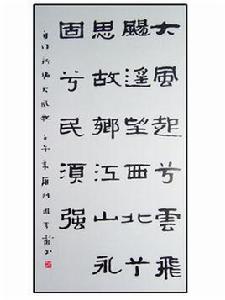 大風起兮雲飛
颺遙望西北兮
思故鄉江山永
固兮民須强
大風歌